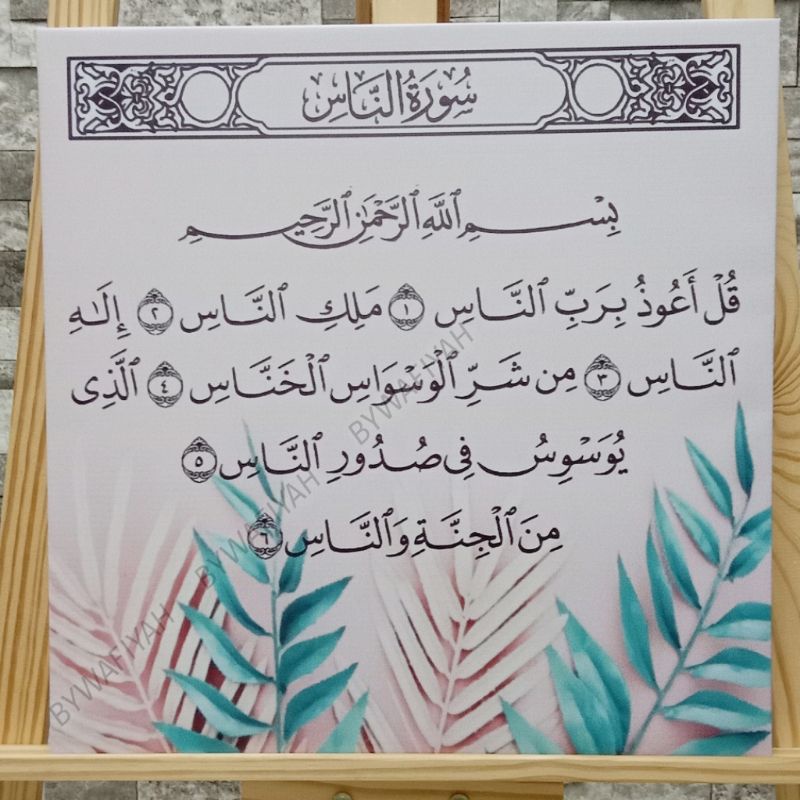 سُورَةُ النَّاسِ
بِسْمِ ٱللَّهِ ٱلرَّحْمَٰنِ ٱلرَّحِيمِ
قُلْ أَعُوذُ بِرَبِّ ٱلنَّاسِ ١ مَلِكِ ٱلنَّاسِ ٢ إِلَٰهِ
ٱلنَّاسِ ٣ مِن شَرِّ ٱلْوَسْوَاسِ ٱلْخَنَّاسِ ٤ ٱلَّذِى
يُوَسْوِسُ فِى صُدُورِ ٱلنَّاسِ ٥
مِنَ ٱلْجِنَّةِ وَٱلنَّاسِ ٦
BYWAFIYAH
BYWAFIYAH
BYWAFIYAH